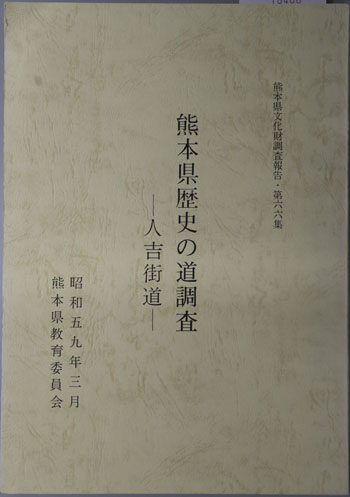 熊本県文化財調査報告・第六六集
熊本県歴史の道調査
―人吉街道―
昭和五九年三月
熊本県教育委員会